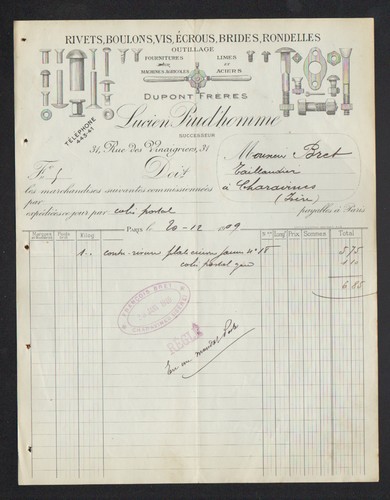 RIVETS, BOULONS, VIS, ECROUS, BRIDES, RONDELLES
OUTILLAGE
FOURNITURES
pour
MACHINES AGRICOLES
LIMES
ET
ACIERS
DUPONT FRÈRES
Lucien Prud'homme
SUCCESSEUR
TÉLÉPHONE
445-41
31, Rue des Vinaigriers, 31
Monsieur Bret
Taillandier
à Charavines
(Isère)
Doit
les marchandises suivantes commissionnées
par
expédiées par colis postal
payables à Paris
Paris, le 20-12 09
Kilog
Long
Prix
Sommes
Total
plat
4 18
5 75
colis postal gare
1 10
6 85
FRANÇOIS BRET
CHARAVINES (ISÈRE)
RÉGLÉ
mandat